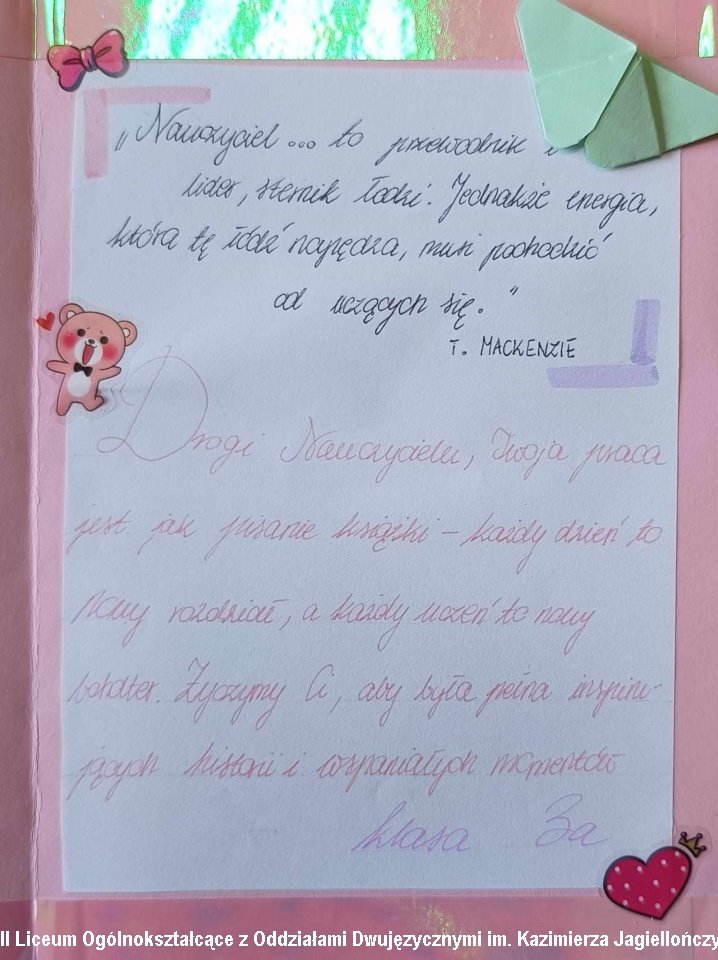 „Nauczyciel... to przewodnik i
lider, sternik łodzi. Jednakże energia,
która tę łódź napędza, musi pochodzić
od uczących się."
T. MACKENZIE
Drogi Nauczycielu, Twoja praca
jest jak pisanie książki – każdy dzień to
nowy rozdział, a każdy uczeń to nowy
bohater. Życzymy Ci, aby była pełna inspiru-
jących historii i wspaniałych momentów
klasa 3a
II Liceum Ogólnokształcące z Oddziałami Dwujęzycznymi im. Kazimierza Jagiellończy